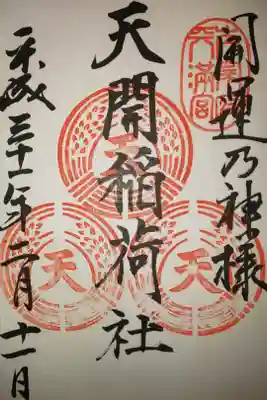 開運乃神様
天満宮
天開稲荷社
天
天
天
平成三十一年二月十一日